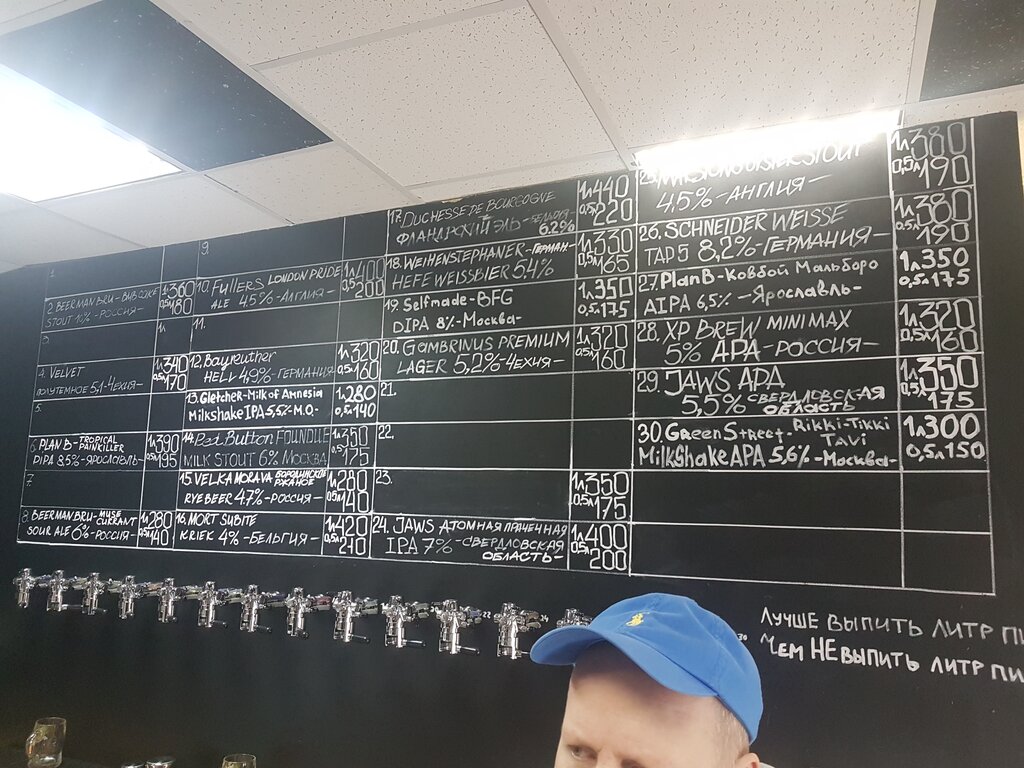 1
2. BEERMAN BRU-
STOUT 10% - РОССИЯ -
1л 360
0,5л 180
3.
1л
4. VELVET
ПОЛУТЕМНОЕ 5,1 - ЧЕХИЯ -
1л 340
0,5л 170
5.
6. PLAN B - TROPICAL PAINKILLER
DIPA 8,5% - ЯРОСЛАВЛЬ -
1л 390
0,5л 195
7
8. BEERMAN BRU - MUSE CURRANT
SOUR ALE 6% - РОССИЯ -
1л 280
0,5л 140
9.
10. FULLERS LONDON PRIDE
ALE 4,5% - АНГЛИЯ -
1л 400
0,5л 200
11.
12. Bayreuther
HELL 4,9% - ГЕРМАНИЯ
1л 320
0,5л 160
13. Gletcher - Milk of Amnesia
Milkshake IPA 5,5% - М.О. -
1л 280
0,5л 140
14. Button
MILK STOUT 6% МОСКВА
1л 350
0,5л 175
15. VELKA MORAVA БОРОДИНСКОЕ РЖАНОЕ
RYE BEER 4,7% - РОССИЯ -
1л 280
0,5л 140
16. MORT SUBITE
KRIEK 4% - БЕЛЬГИЯ -
1л 420
0,5л 210
17. DUCHESSE DE BOURGOGNE
ФЛАНДРСКИЙ ЭЛЬ - БЕЛЬГИЯ - 6.2%
1л 440
0,5л 220
18. WEIHENSTEPHANER - ГЕРМАН -
HEFE WEISSBIER 5,4%
1л 330
0,5л 165
19. Selfmade - BFG
DIPA 8% - Москва -
1л 350
0,5л 175
20. GAMBRINUS PREMIUM
LAGER 5,2% - ЧЕХИЯ -
1л 320
0,5л 160
21.
22.
23.
1л 350
0,5л 175
24. JAWS АТОМНАЯ ПРАЧЕЧНАЯ
IPA 7% - СВЕРДЛОВСКАЯ
ОБЛАСТЬ -
1л 400
0,5л 200
STOUT
4,5% - АНГЛИЯ -
1л 380
0,5л 190
26. SCHNEIDER WEISSE
TAP 5 8,2% - ГЕРМАНИЯ -
1л 380
0,5л 190
27. Plan B - Ковбой Мальборо
AIPA 6,5% - Ярославль -
1л 350
0,5л 175
28. XP BREW MINIMAX
5% APA - РОССИЯ -
1л 320
0,5л 160
29. JAWS APA
5,5% СВЕРДЛОВСКАЯ
ОБЛАСТЬ
1л 350
0,5л 175
30. Green Street. Rikki-Tikki
Tavi
Milkshake APA 5,6% - Москва -
1л 300
0,5л 150
ЛУЧШЕ ВЫПИТЬ ЛИТР ПИ
ЧЕМ НЕ ВЫПИТЬ ЛИТР ПИ